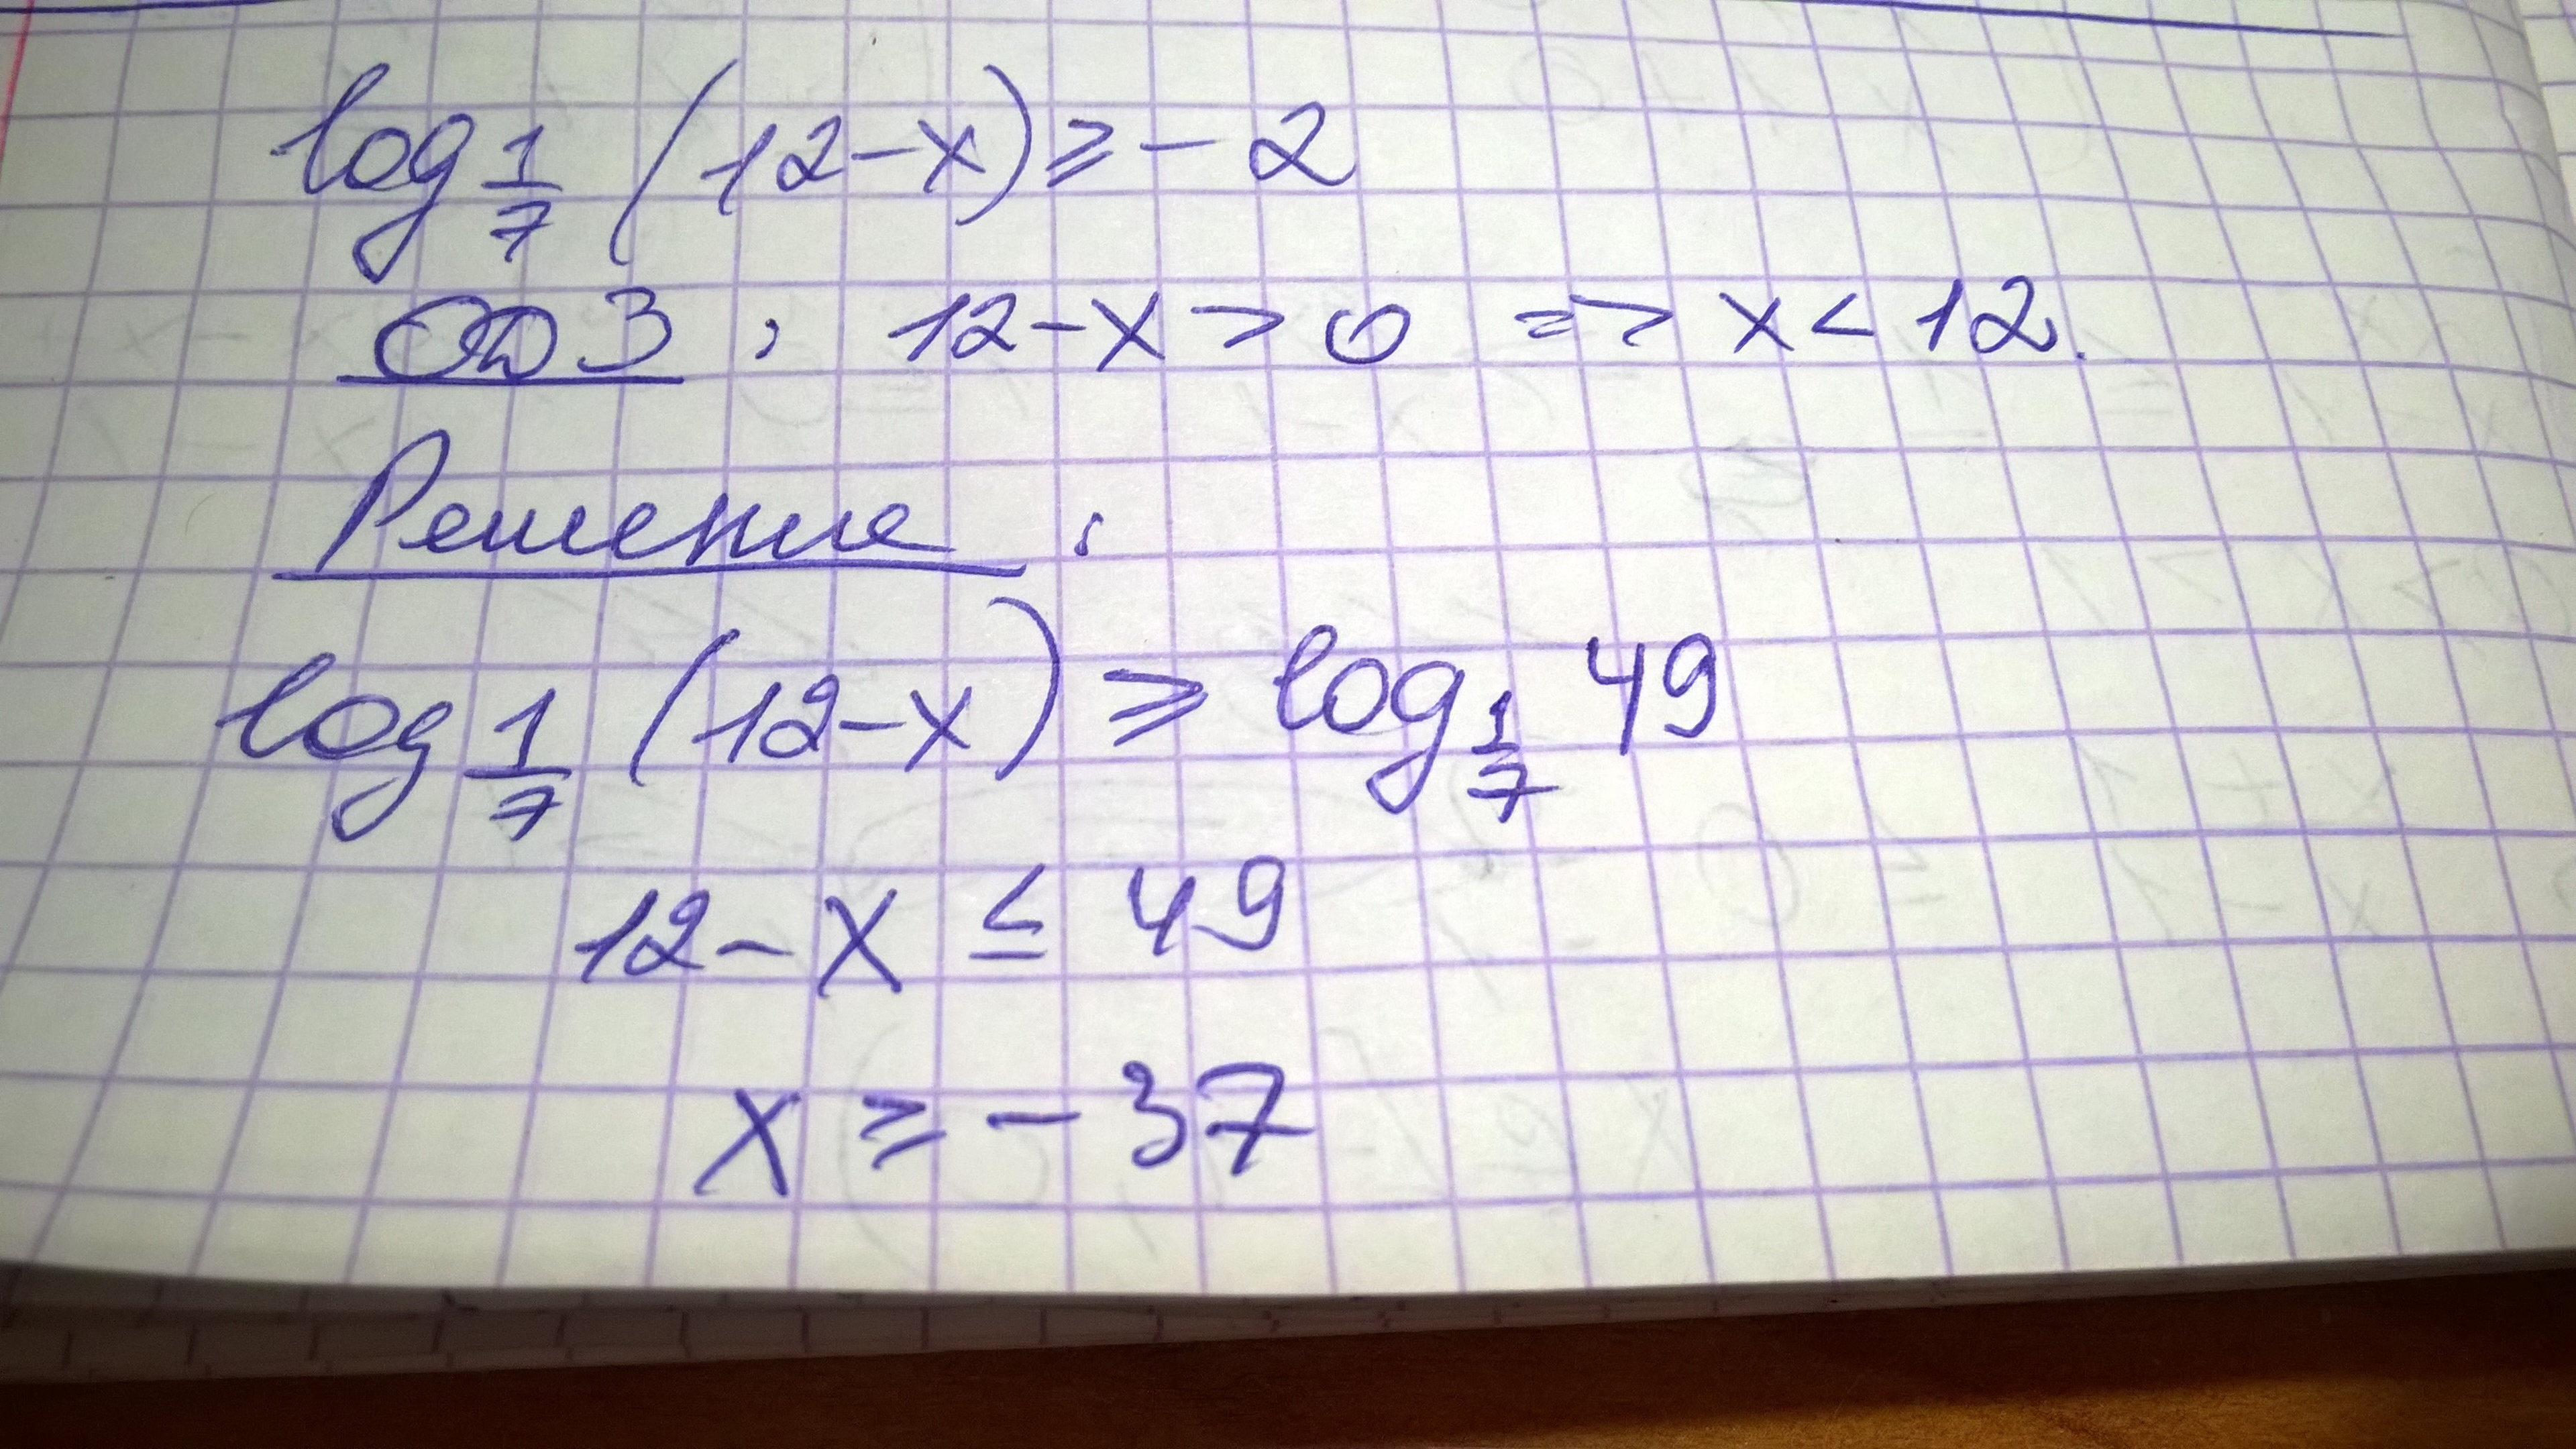 log 1/7 (12-x) ≥ -2
ОДЗ: 12-x > 0 => x < 12.
Решение:
log 1/7 (12-x) ≥ log 1/7 49
12-x ≤ 49
x ≥ -37